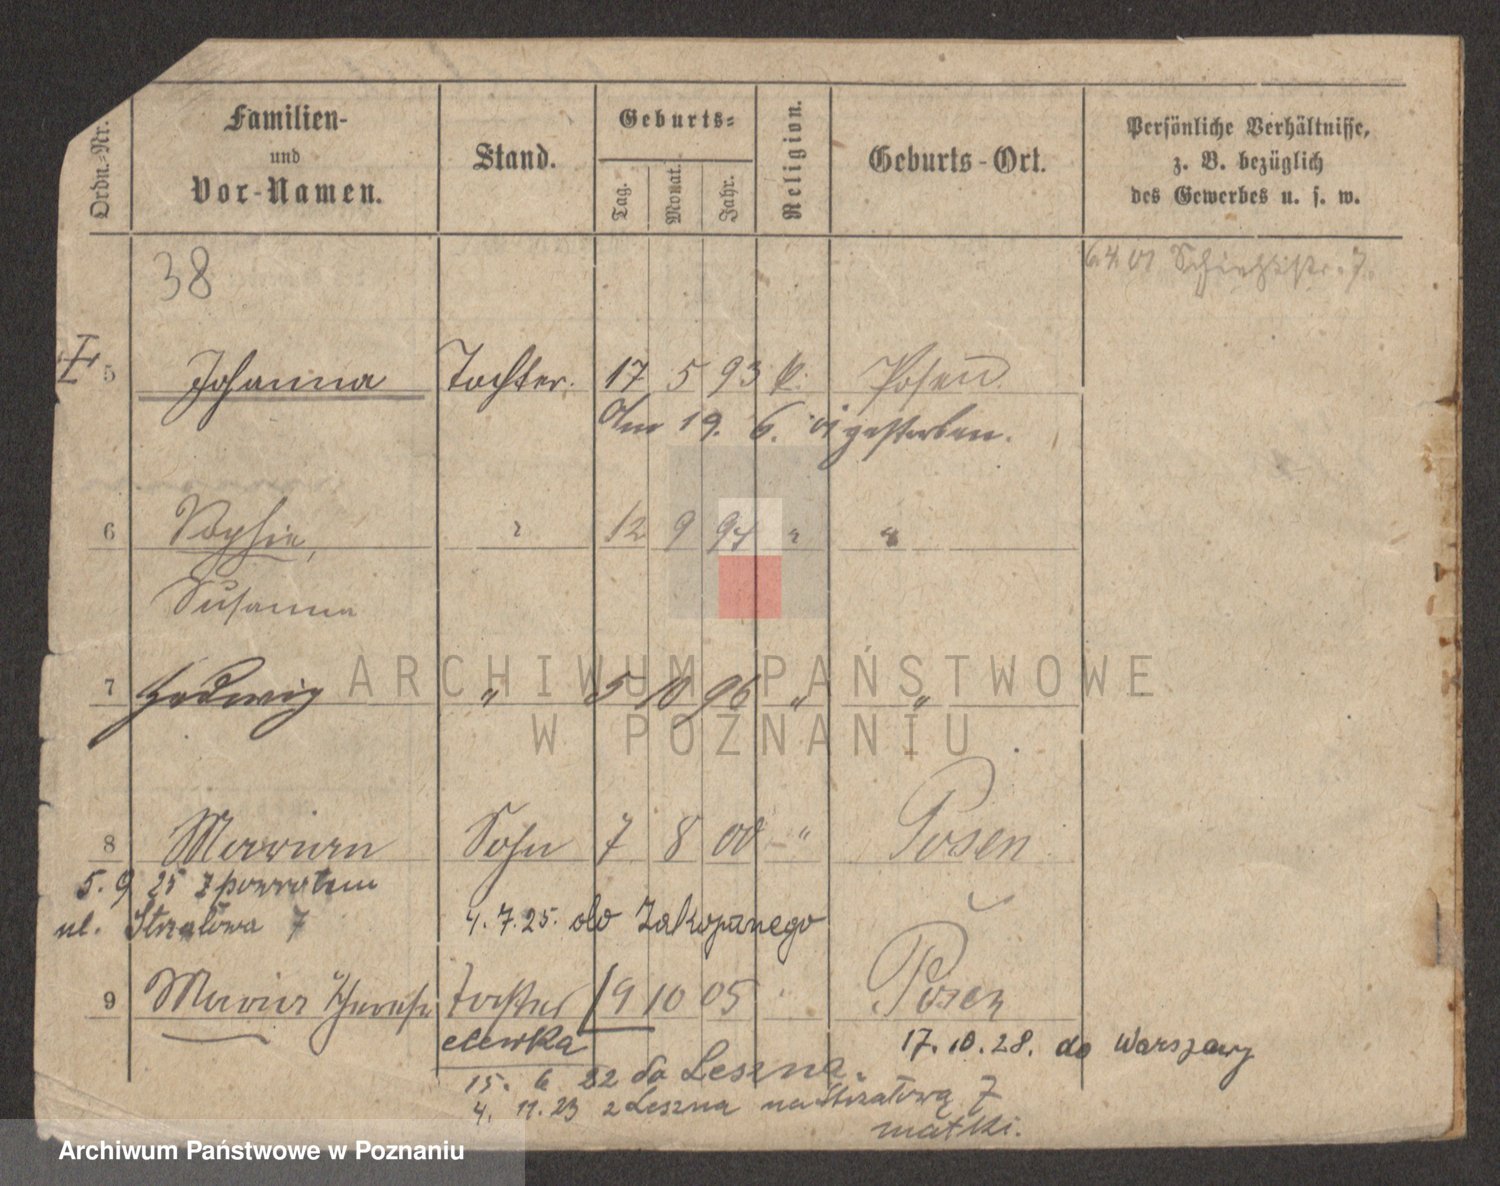 Ordn.-Nr.
Familien-
und
Vor-Namen.
Stand.
Geburts-
Tag. Monat. Jahr.
Religion.
Geburts-Ort.
Persönliche Verhältnisse,
z. B. bezüglich
des Gewerbes u. s. w.
38
6.4.01 7.
5 Johanna Tochter. 17 5 93 k. Posen.
Am 19. 6. 01 gestorben.
6 Sophie, 12 9 94 " "
Susanna
ARCHIWUM PAŃSTWOWE
7 Hedwig " 5 10 96 " "
W POZNANIU
8 Marian Sohn 7 8 00 " Posen
5. 9 25 z powrotem
ul. Strzałowa 7 4. 7. 25. do Zakopanego
9 Maria Therese Tochter 19 10 05 Posen
elewka 17. 10. 28. do Warszawy
15. 6 22 do Leszna.
4. 11. 23 z Leszna na Strzałową 7
matki.
Archiwum Państwowe w Poznaniu